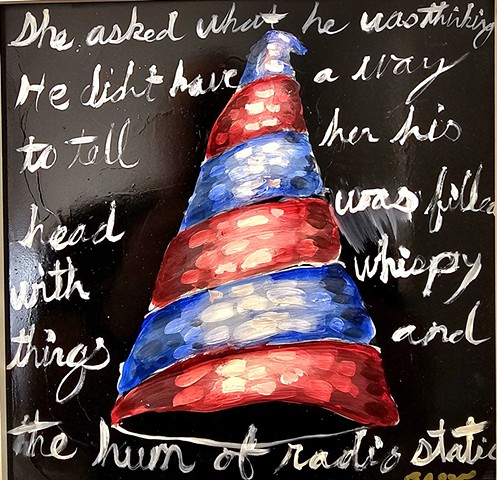 She asked what he was thinking
He didnt have a way
to tell her his
head was filled
with whispy
things and
the hum of radio static